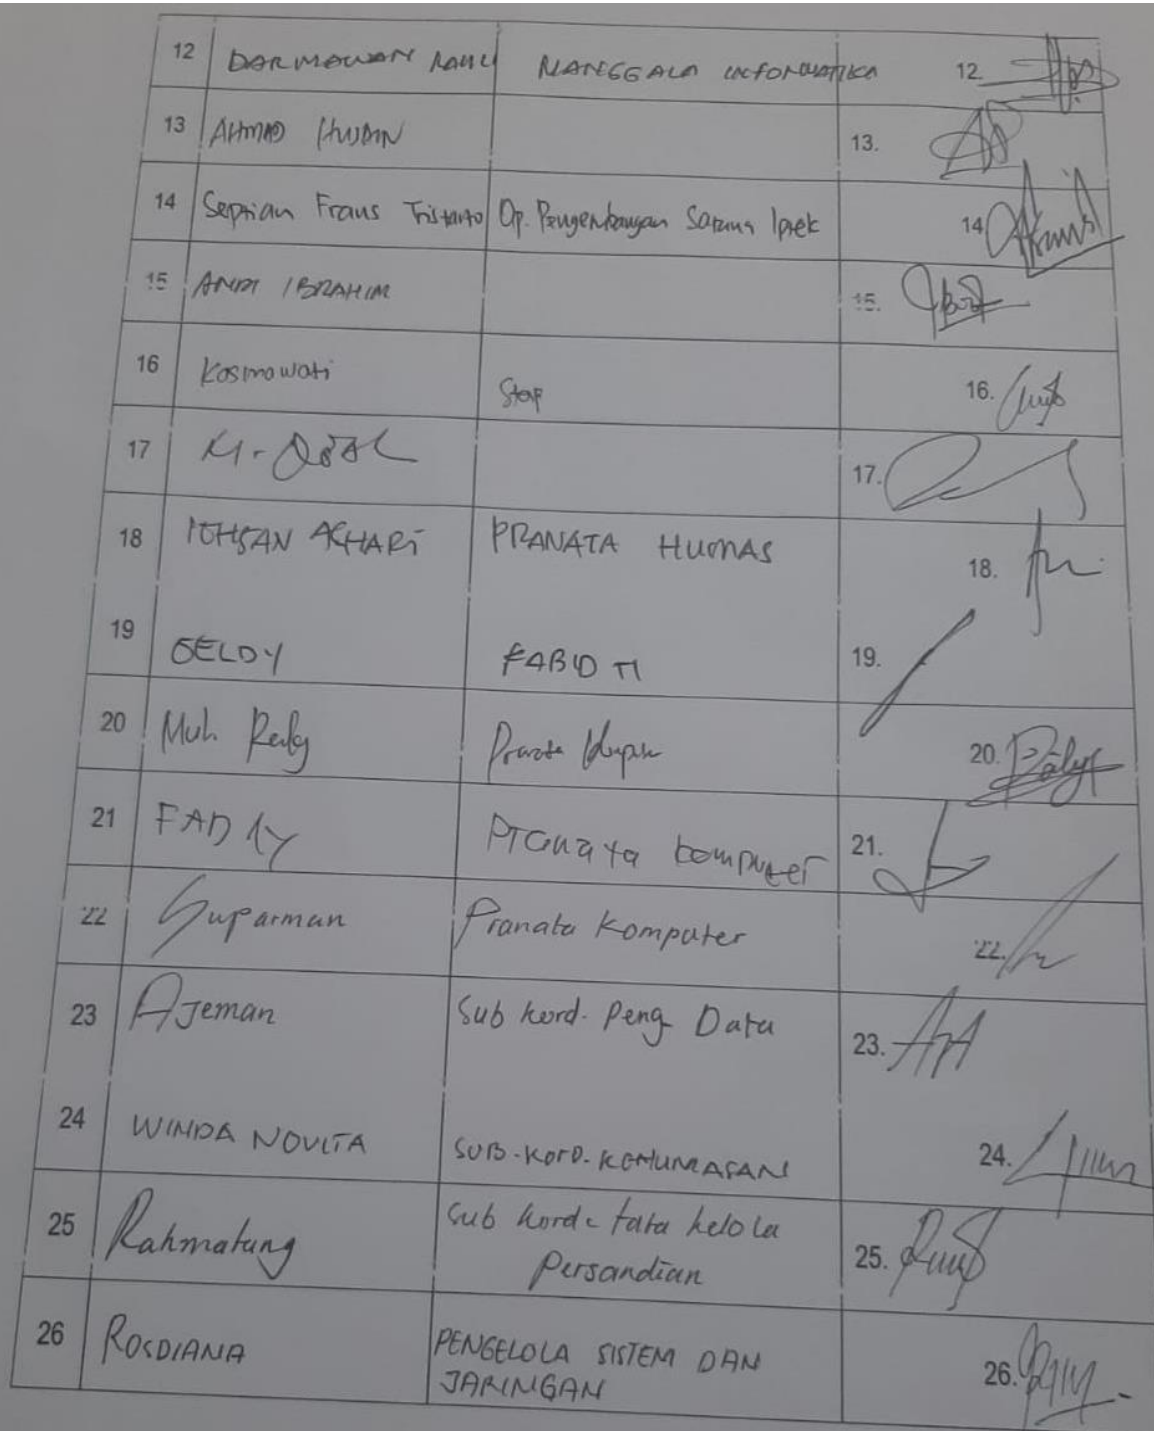 12 DARMAWAN NANGGALA INFORMATIKA 12.
13 AHMAD HUSAIN 13.
14 Seprian Frans Tristanto Op. Pengembangan Sarana Iptek 14
15 ANDI IBRAHIM 15.
16 Kosmawati Stap 16.
17 M. 17.
18 ICHSAN ASHARI PRANATA HUMAS 18.
19 GELDY KABID TI 19.
20 Muh. Pranata 20.
21 FADLY Pranata komputer 21.
22 Suparman Pranata Komputer 22.
23 AJeman Sub kord. Peng Data 23.
24 WINDA NOVITA SUB-KORD. KEHUMASAN 24.
25 Rahmatung Sub kord. tata kelola
Persandian 25.
26 ROSDIANA PENGELOLA SISTEM DAN
JARINGAN 26.